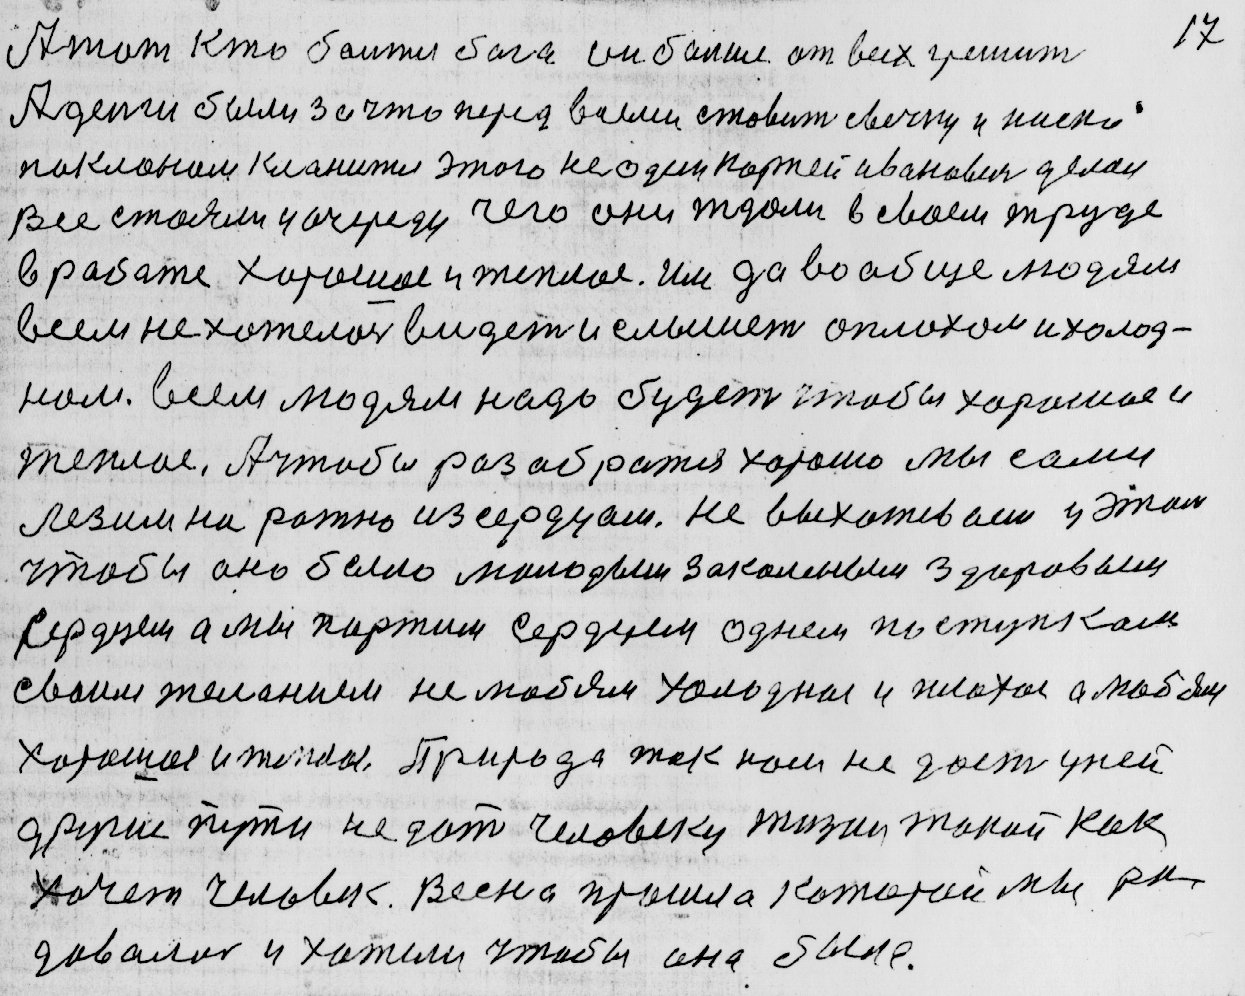 17
А тот кто боится бога он больше от всех грешит
А денги были зачто перед всеми ставит свечку и ниски
поклоном кланится этого не один Порфей иванович делал
Все стояли у очереди чего они ждали в своем труде
в работе хорошое и теплое. им да вообще людям
всем не хотелос видет и слышет оплохом и холод-
ном. всем людям надо будет чтобы хорошое и
теплое. А чтобы разобратся хорошо мы сами
Лезим на рожно из сердцам. не выхажеваем у этом
чтобы оно было молодым закаленым здоровым
Сердцем а мы портим Сердцем однем поступкам
своим желанием не любям холодное и плохое а любям
хорошое и теплое. Природа так нам не дает уней
другие пути не дат человеку жизни такой как
хочет человек. Весна пришла которой мы ра-
довалос и хотели чтобы она была.